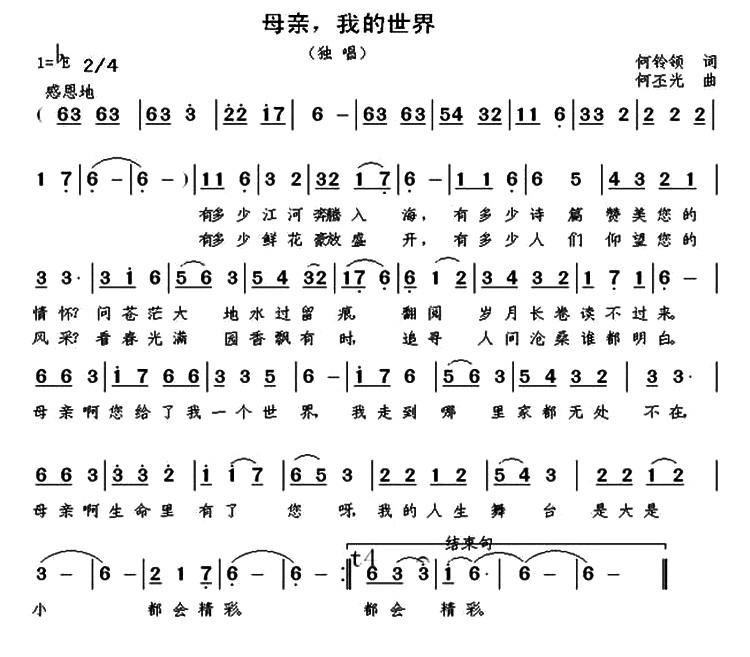 母亲，我的世界
（独 唱）
1=♭E 2/4
何铃领 词
何丕光 曲
感恩地
( 63 63 | 63 3 | 22 17 | 6 – | 63 63 | 54 32 | 11 6 | 33 2 | 2 2 2 |
1 7 | 6 – | 6 – ) | 11 6 | 3 2 | 32 1 7 | 6 – | 1 1 6 | 6 5 | 4 3 2 1 |
有多少江河奔腾入 海，有多少诗篇 赞美您的
有多少鲜花豪放盛 开，有多少人们 仰望您的
3 3· | 3 1 6 | 5 6 3 | 5 4 32 | 17 6 | 6 1 2 | 3 4 3 2 | 1 7 1 | 6 – |
情怀？问苍茫大 地水过留 痕，翻阅 岁月长卷读不过来。
风采？看春光满 园香飘有 时，追寻 人间沧桑谁都明白。
6 6 3 | 1 7 6 6 | 3 3 5 | 6 – | 1 7 6 | 5 6 3 | 5 4 3 2 | 3 3· |
母亲啊您给了我一个世界，我走到 哪 里家都无处 不在，
6 6 3 | 3 3 2 | 1 1 7 | 6 5 3 | 2 2 1 2 | 5 4 3 | 2 2 1 2 |
母亲啊生命里 有了 您 呀，我的人生 舞 台 是大是
结束句
3 – | 6 – | 2 1 7 | 6 – | 6 – :‖ 6 3 3 | 1 6· | 6 – | 6 – ‖
小 都会精彩。 都会 精彩。